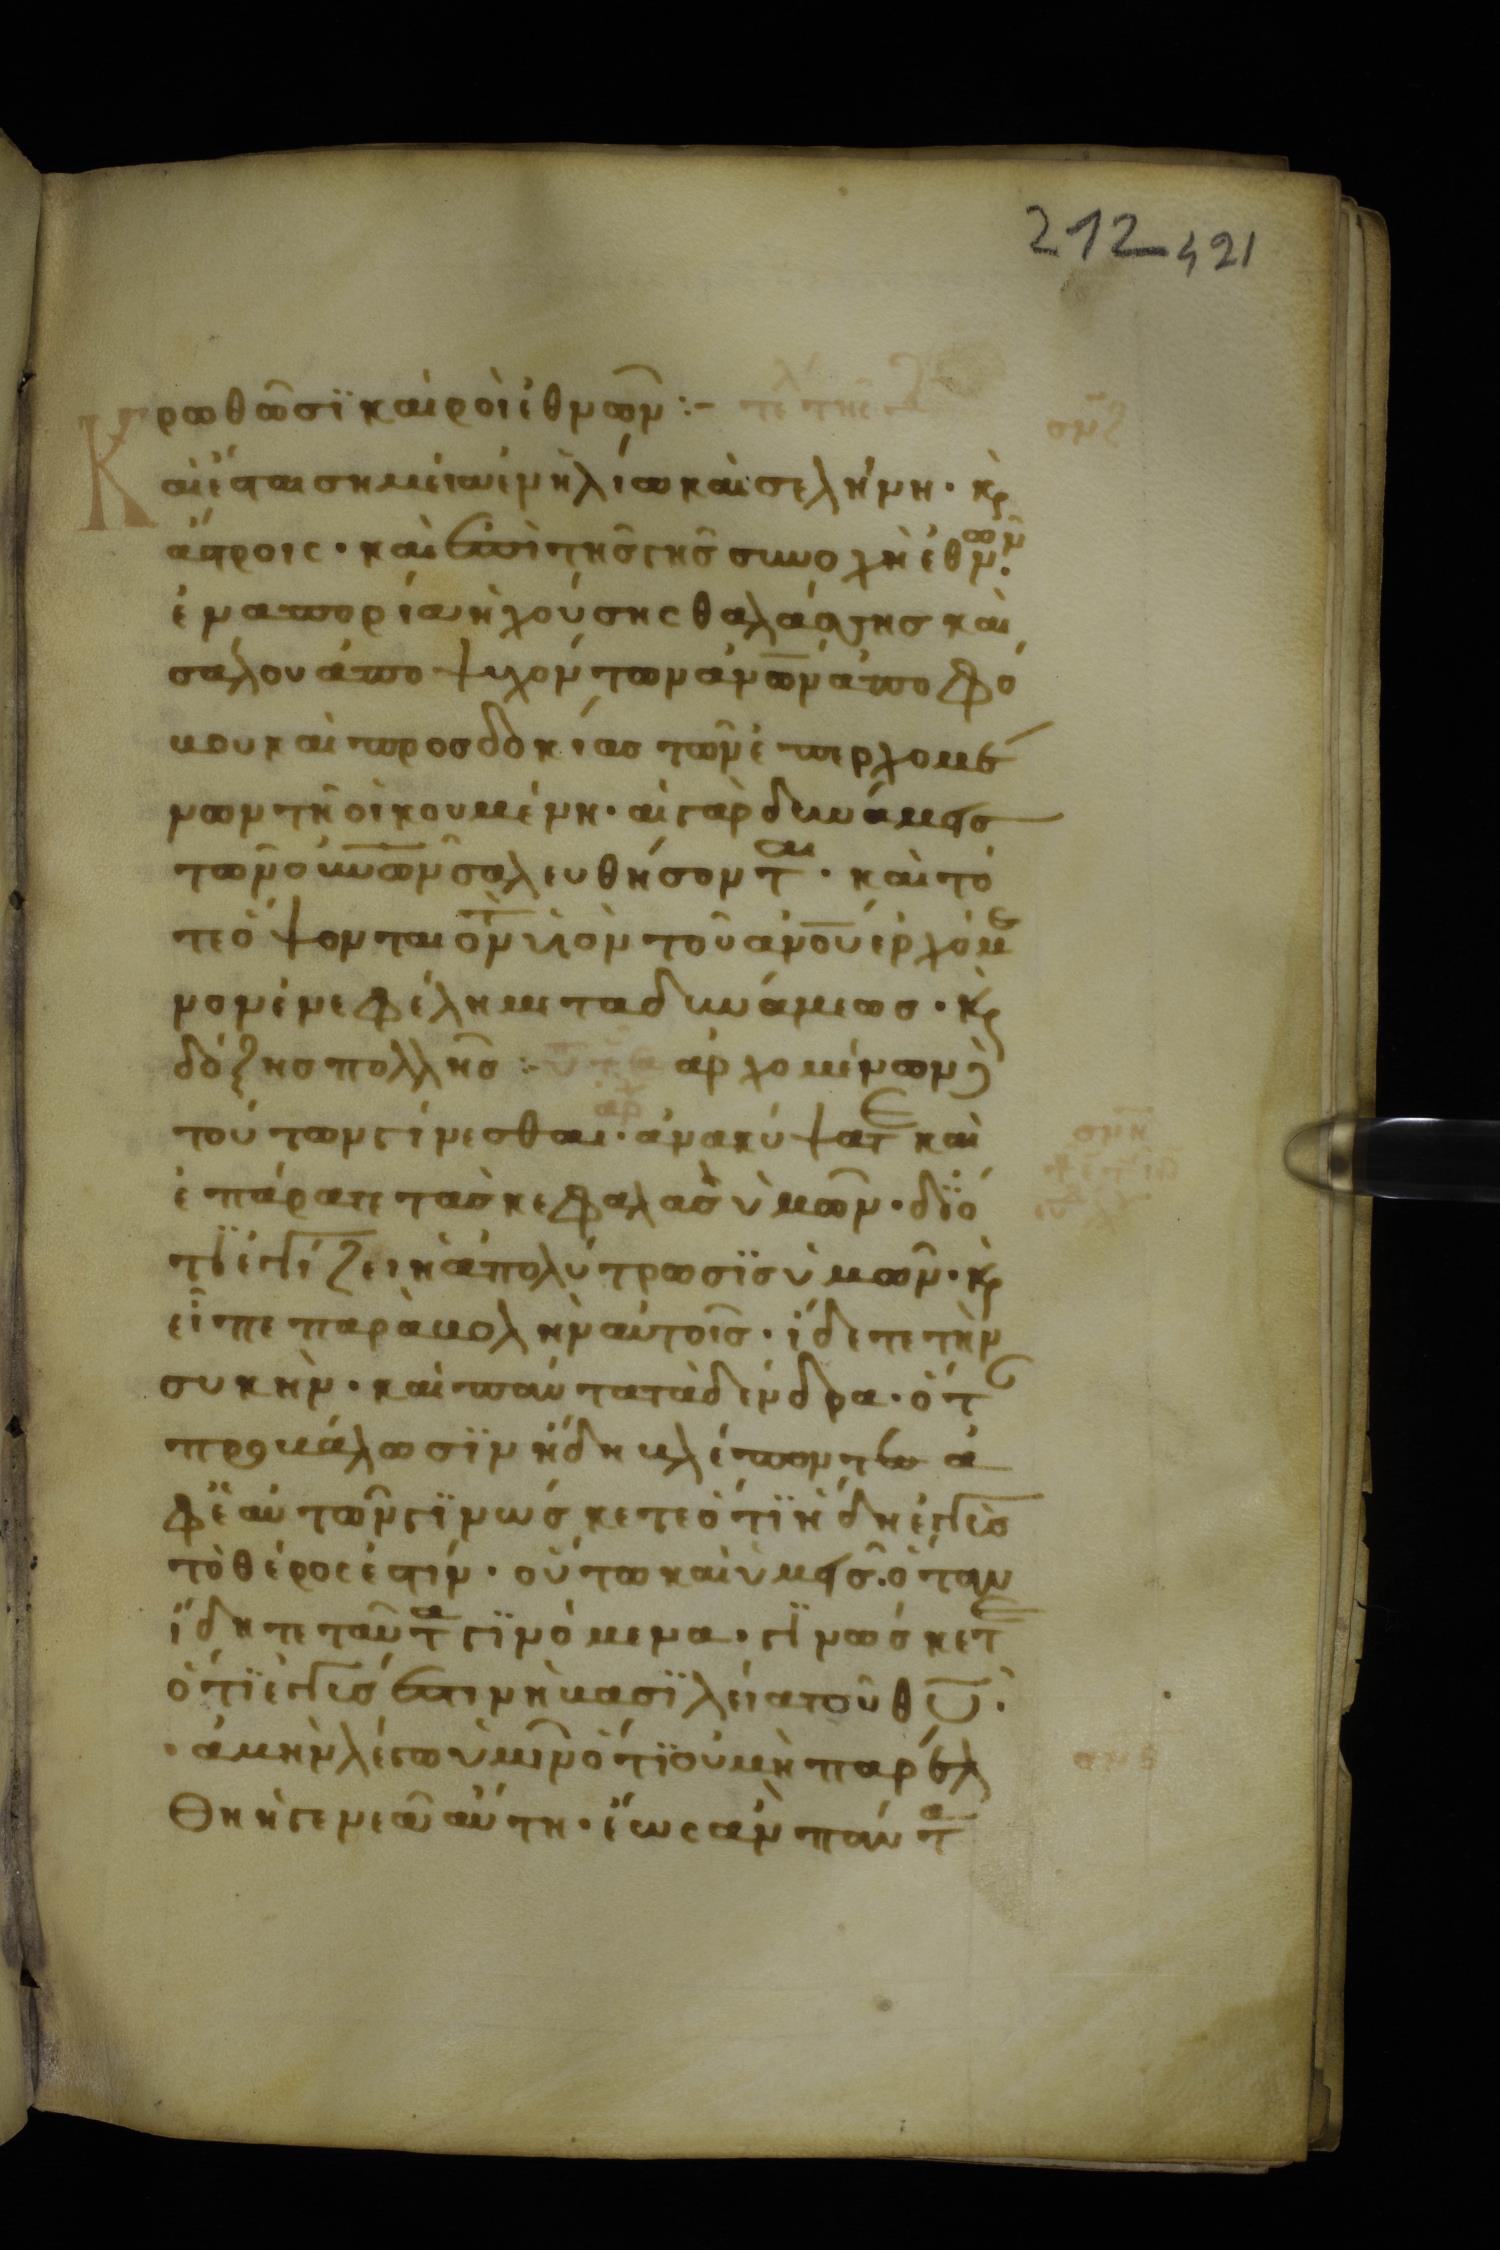 212 421
ρωθῶσϊ καιροὶ ἐθνῶν :-
Καὶ ἔσται σημεῖα ἐν ἡλίω καὶ σελήνη · κ(αὶ)
ἄστροις · καὶ ἐπὶ τῆς γῆς συνοχὴ ἐθνῶν ·
ἐν ἀπορία ἠχούσης θαλάσσης καὶ
σάλου ἀποψυχόντων ἀν̅ων ἀπὸ φό
βου καὶ προσδοκίας τῶν ἐπερχομέ
νων τῆ οἰκουμένη · αἱ γὰρ δυνάμεις
τῶν οὐν̅ων σαλευθήσονται · καὶ τό
τε ὄψονται τὸν υἱὸν τοῦ ἀν̅ου ἐρχόμε
νον ἐν νεφέλη μετὰ δυνάμεως · κ(αὶ)
δόξης πολλῆς :- ἀρχομένων δὲ
τούτων γίνεσθαι · ἀνακύψατε καὶ
ἐπάρατε τὰς κεφαλὰς ὑμῶν · δϊό
τϊ ἐγγίζει ἡ ἀπολύτρωσϊς ὑμῶν · κ(αὶ)
εἶπε παραβολὴν αὐτοῖς · ἴδετε τὴν
συκὴν · καὶ πάντα τὰ δένδρα · ὅτ(αν)
προβάλωσϊν ἤδη βλέποντες ἀ
φ' ἑαυτῶν γϊνώσκετε ὅτϊ ἤδη ἐγγὺς
τὸ θέρος ἐστίν · οὕτω καὶ ὑμεῖς · ὅταν
ἴδητε ταῦτα γϊνόμενα · γϊνώσκετε
ὅτϊ ἐγγύς ἐστιν ἡ βασϊλεία τοῦ θ̅υ ·
· ἀμὴν λέγω ὑμῖν ὅτϊ οὐ μὴ παρέλ
θη ἡ γενεὰ αὕτη · ἕως ἂν πάντα
σμζ
σμη
σμθ